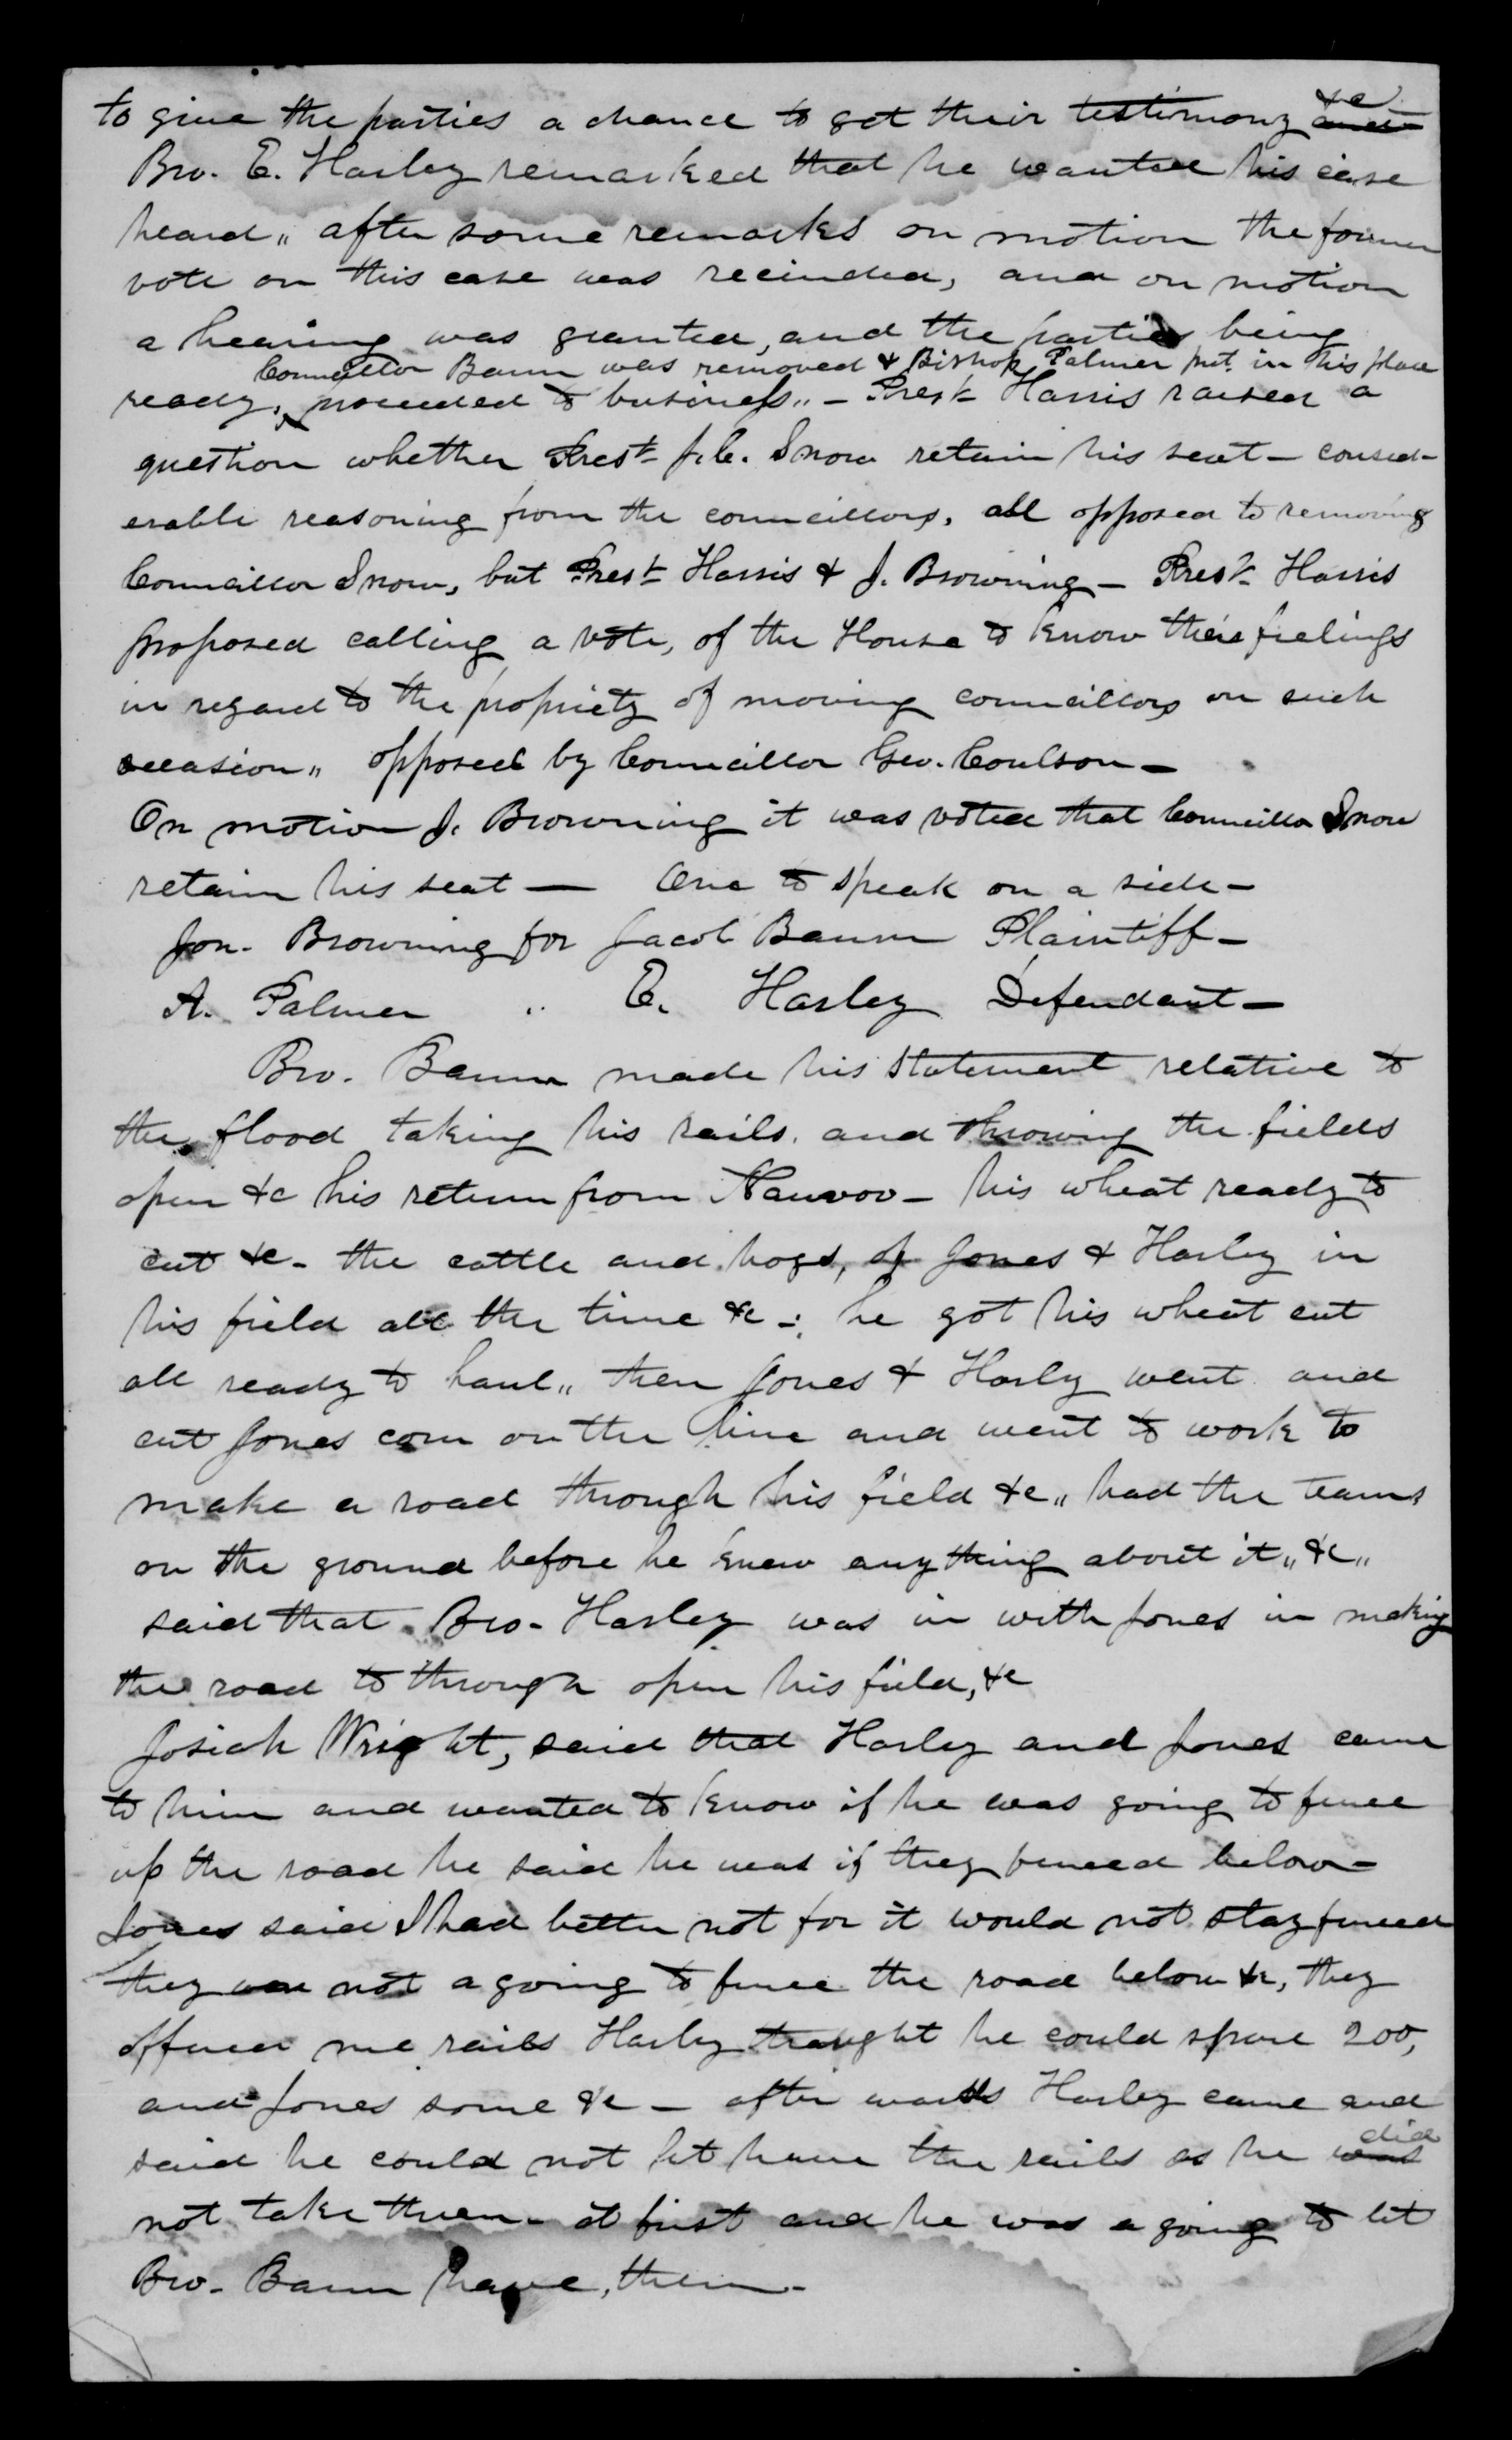 to give the parties a chance to get their testimony &c and
Bro. E. Harley remarked that he wanted his case
heard,, after some remarks on motion the former
vote on this case was recinded, and on motion
a hearing was granted, and the parties being
Councillor Baum was removed & Bishop Palmer put in his place
ready, proceeded to business,, — Prest. Harris raised a
question whether Prest. J. C. Snow retain his seat — consid-
erable reasoning from the councillors, all opposed to removing
Councillor Snow, but Prest. Harris & J. Browning — Prest. Harris
proposed calling a vote, of the House to know their feelings
in regard to the propriety of moving councillors on such
occasion,, opposed by Councillor Geo. Coulson —
On motion J. Browning it was voted that Councillor Snow
retain his seat — One to speak on a side —
Jon. Browning for Jacob Baum Plaintiff —
A. Palmer ,, E. Harley Defendant —
Bro. Baum made his statement relative to
the flood taking his rails, and throwing the fields
open &c his return from Nauvoo — his wheat ready to
cut &c — the cattle and hogs, of Jones & Harley in
his field all the time &c —; he got his wheat cut
all ready to haul,, then Jones & Harly went and
cut Jones corn on the line and went to work to
make a road through his field &c,, had the teams
on the ground before he knew any thing about it,, &c,,
said that Bro. Harley was in with Jones in making
the road to through open his field, &c
Josiah Wright, said that Harley and Jones came
to him and wanted to know if he was going to fence
up the road he said he was if they fenced below —
Jones said I had better not for it would not stay fenced
they was not a going to fence the road below &c, they
offered me rails Harley thaught he could spare 200,
and Jones some &c — after wards Harley came and
said he could not let have the rails as he was did
not take them — at first and he was a going to let
Bro. Baum have, them —